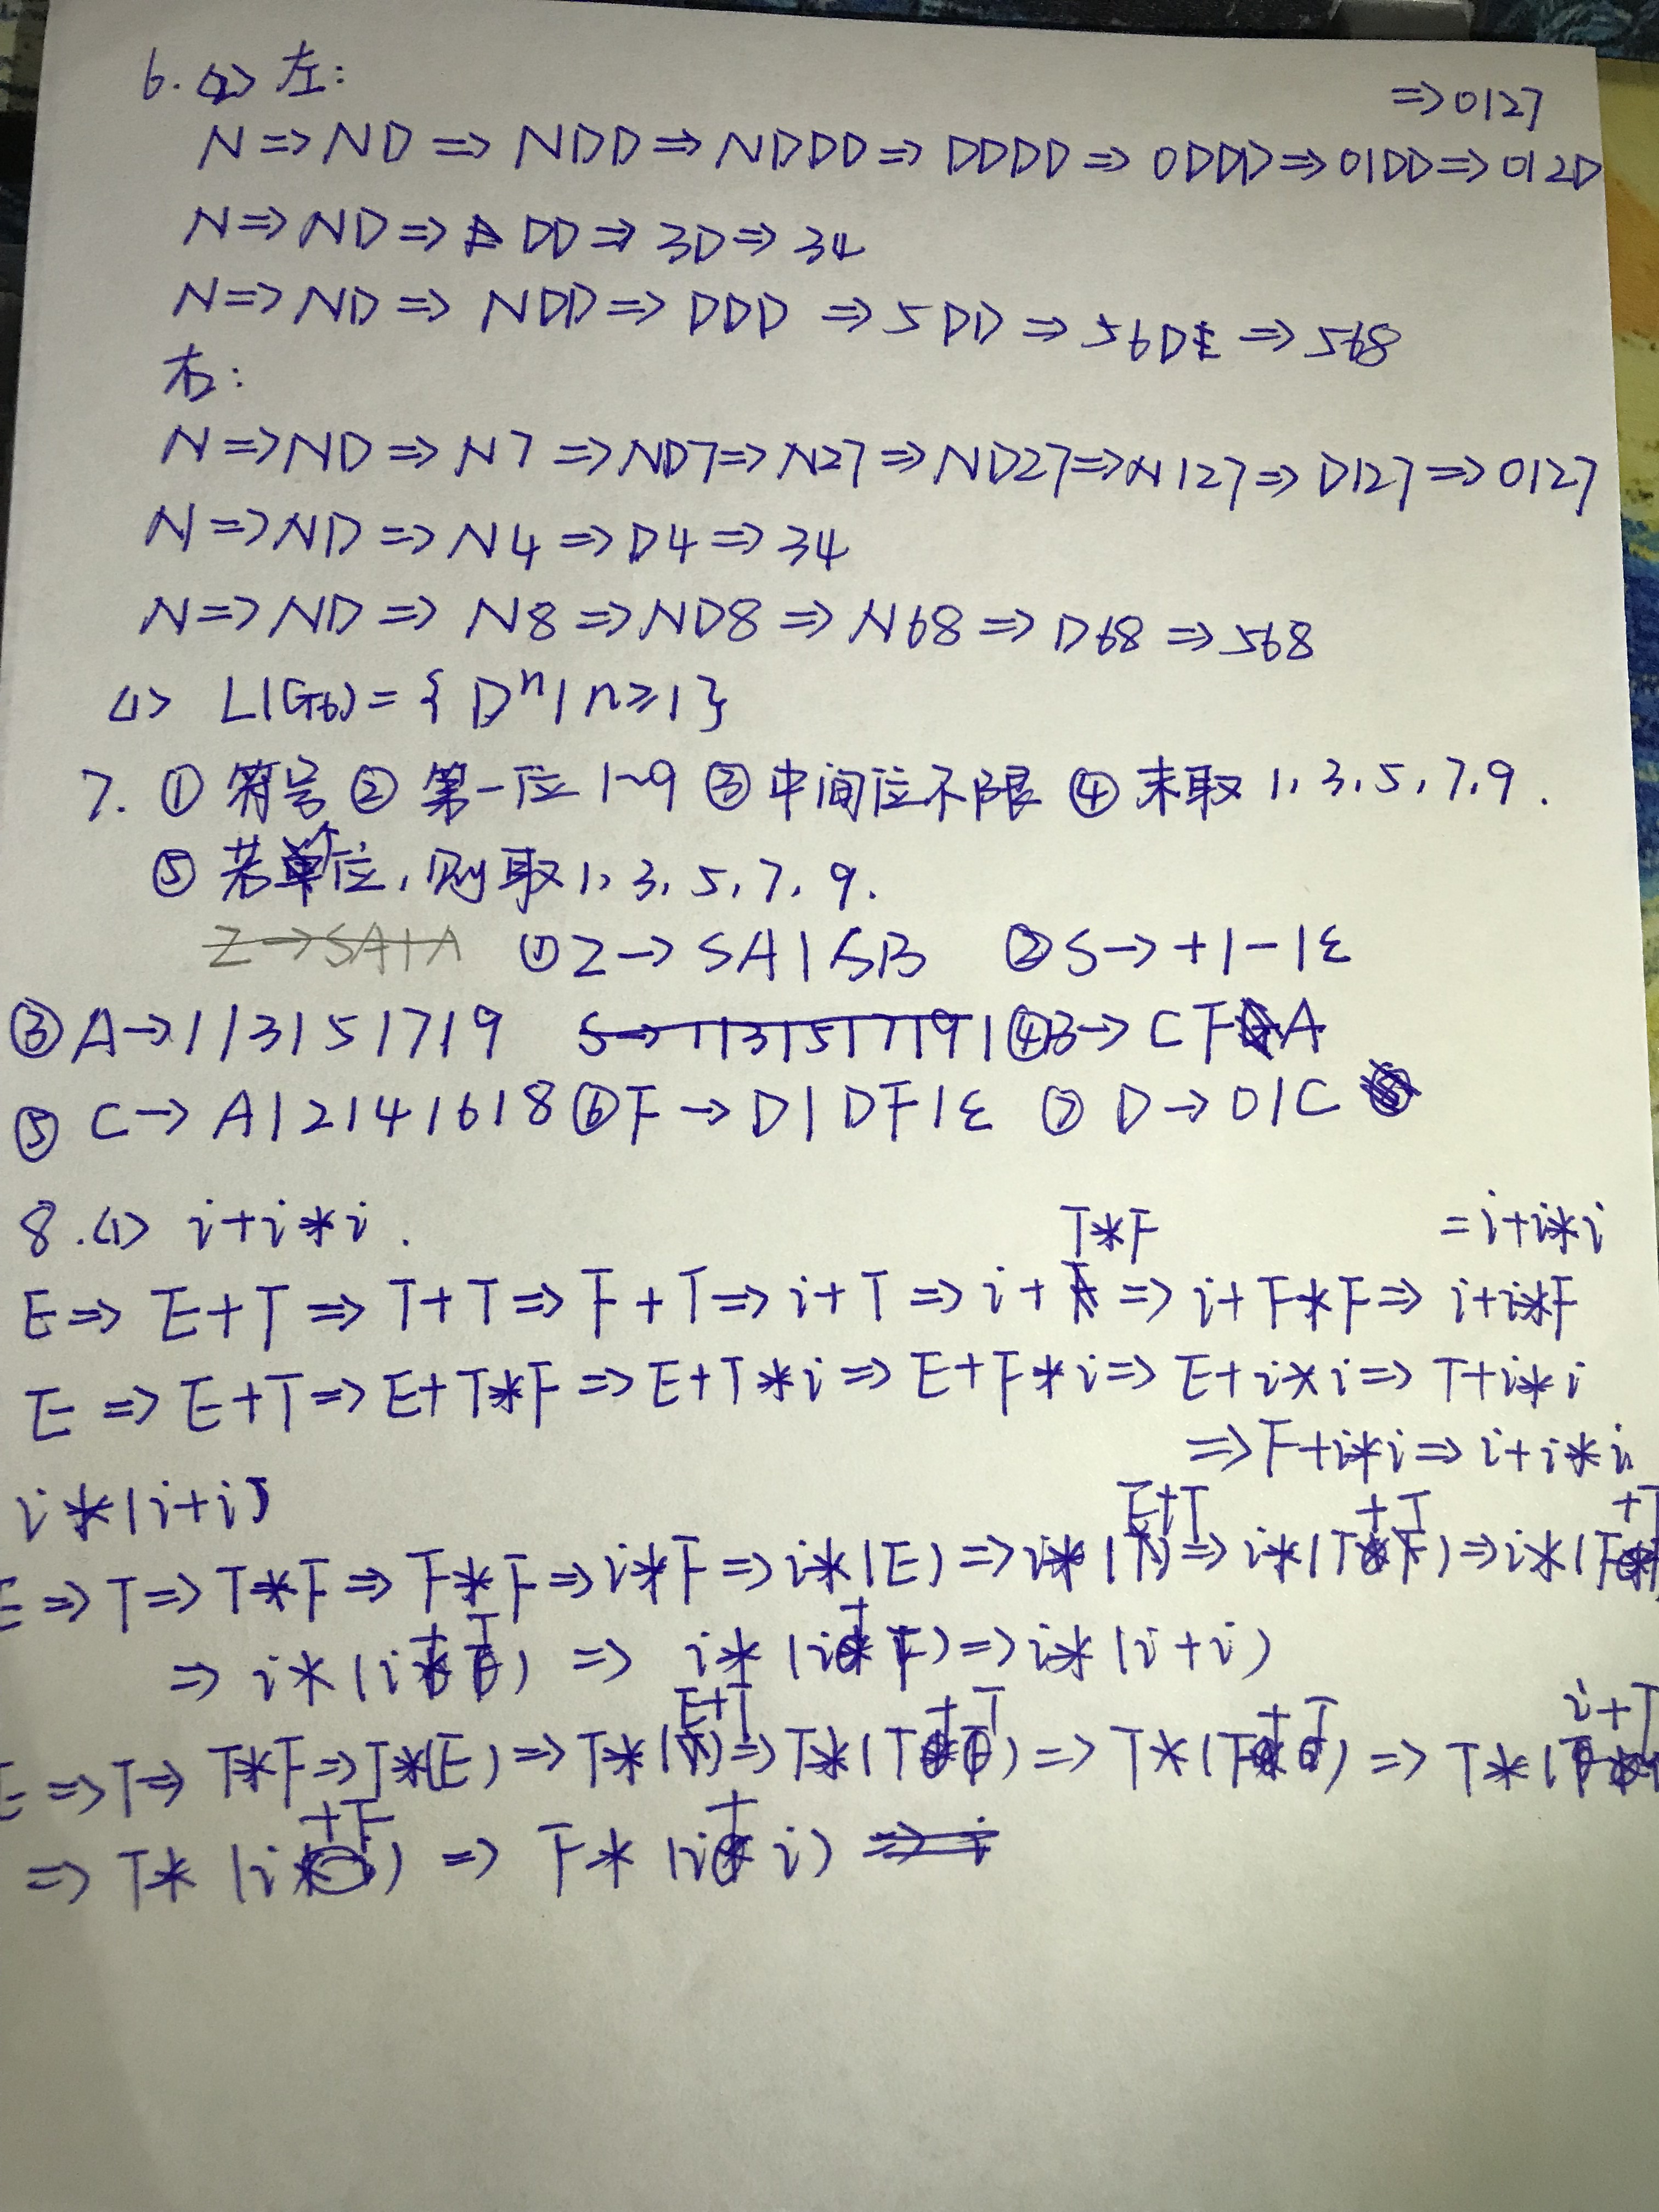 6. (2) 左:
=> 0127
N => ND => NDD => NDDD => DDDD => 0DDD => 01DD => 012D
N => ND => DD => 3D => 34
N => ND => NDD => DDD => 5DD => 56D => 568
右:
N => ND => N7 => ND7 => N27 => ND27 => N127 => D127 => 0127
N => ND => N4 => D4 => 34
N => ND => N8 => ND8 => N68 => D68 => 568
(1) L(G6) = { Dⁿ | n≥1 }
7. ① 符号 ② 第一位 1~9 ③ 中间位不限 ④ 末取 1, 3, 5, 7, 9.
⑤ 若个位, 则取 1, 3, 5, 7, 9.
Z → SA|A ① Z → SA|SB ② S → +|-|ε
③ A → 1|3|5|7|9 S → 1|3|5|7|9| ④ B → CFA
⑤ C → A|2|4|6|8 ⑥ F → D|DF|ε ⑦ D → 0|C
8. (1) i+i*i.
T*F =i+i*i
E => E+T => T+T => F+T => i+T => i+ => i+F*F => i+i*F
E => E+T => E+T*F => E+T*i => E+F*i => E+i*i => T+i*i
=> F+i*i => i+i*i
i*(i+i)
E+T +T +T
E => T => T*F => F*F => i*F => i*(E) => i*( ) => i*(T ) => i*(F
+ T +
=> i*(i ) => i*(i F) => i*(i+i)
E+T +T +T i+T
E => T => T*F => T*(E) => T*( ) => T*(T ) => T*(F ) => T*(
+F +
=> T*(i ) => F*(i i) => i